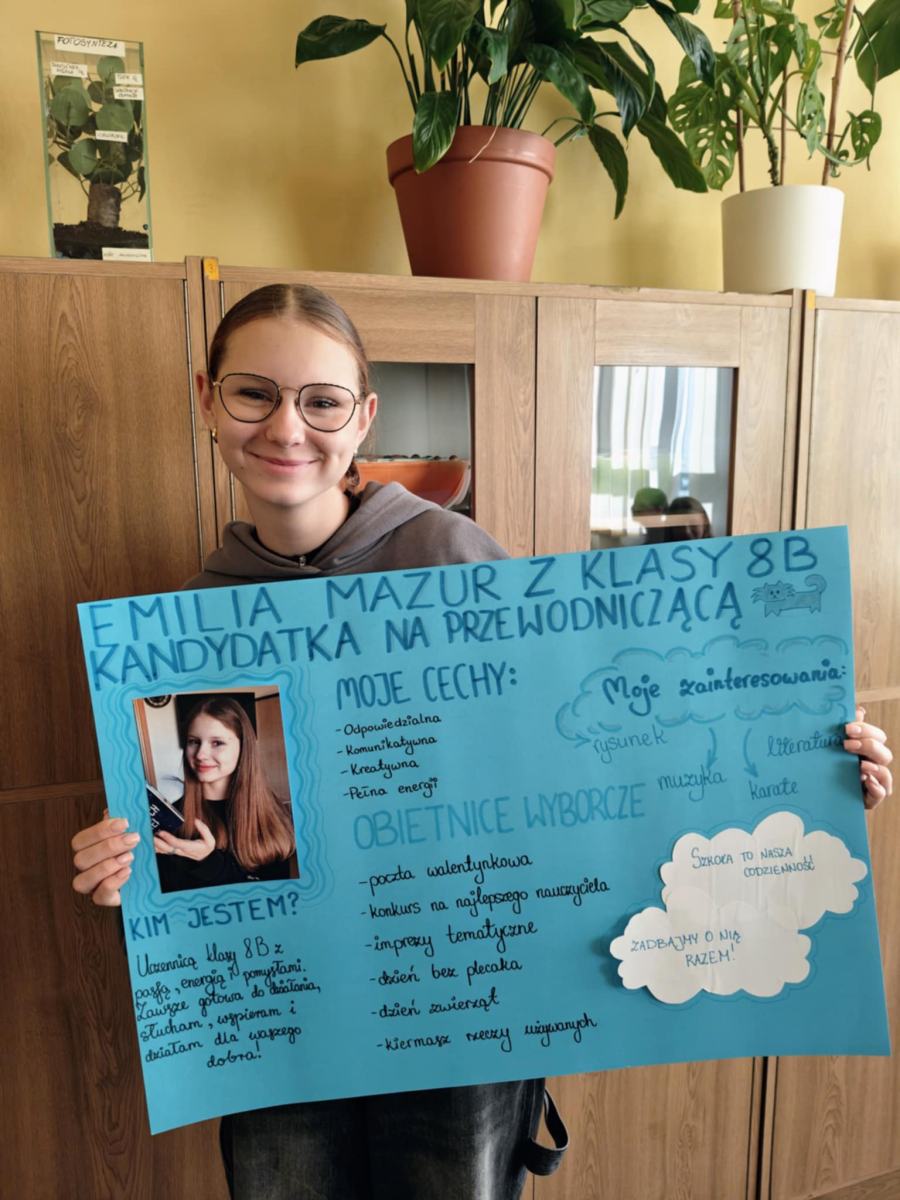 FOTOSYNTEZA
EMILIA MAZUR Z KLASY 8B
KANDYDATKA NA PRZEWODNICZĄCĄ
MOJE CECHY:
- Odpowiedzialna
- Komunikatywna
- Kreatywna
- Pełna energii
Moje zainteresowania:
rysunek
muzyka
karate
literatura
OBIETNICE WYBORCZE
- poczta walentynkowa
- konkurs na najlepszego nauczyciela
- imprezy tematyczne
- dzień bez plecaka
- dzień zwierząt
- kiermasz rzeczy używanych
KIM JESTEM?
Uczennicą klasy 8B z
pasją, energią i pomysłami.
Zawsze gotowa do działania,
słucham, wspieram i
działam dla waszego
dobra!
SZKOŁA TO NASZA
CODZIENNOŚĆ
ZADBAJMY O NIĄ
RAZEM!